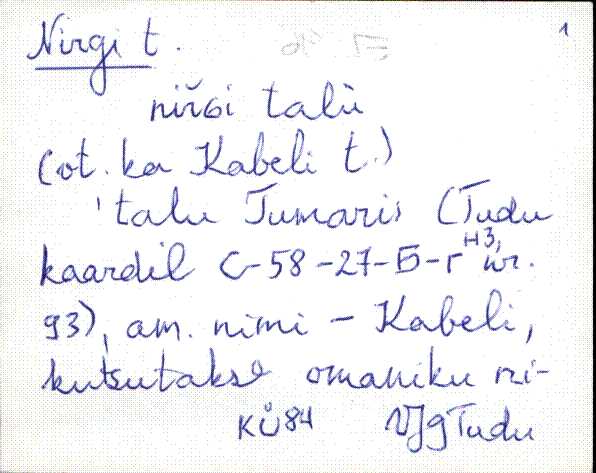 Nirgi t. 1
nir̆Gi talù
(ot. ka Kabeli t.)
'talu Tumaris (Tudu
kaardil C-58-27-Б-Г H3, nr.
93), am. nimi - Kabeli,
kutsutakse omaniku ni-
KÜ84 VJg Tudu